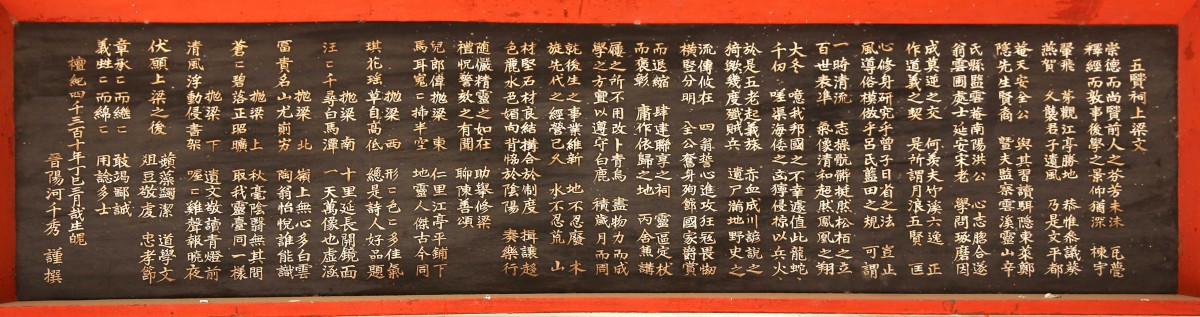 五賢祠上樑文
崇德而尚賢前人之芬芳未沫 瓦甍
釋經而敎事後學之景仰猶深 棟宇
翬飛 觀江亭勝地 恭惟叅議葵
燕賀 久襲君子遺風 乃是文平都
菴天安全公 與其習讀騎隱東萊鄭
隱先生賢裔 曁夫監察雲溪靈山辛
氏縣監雲菴南陽洪公 心志脗合遂
翁雲圃處士延安宋老 學問琢磨因
成莫逆之交 何羨夫竹溪六逸 正
作道義之契 是所謂月浪五賢 匡
心修身研究乎曾子日省之法 豈止
風導俗模倣乎呂氏藍田之規 可謂
一時清流 志操骯髒挺然松栢之立
百世表準 氣像清和超然鳳凰之翔
大冬 噫我邦國之不幸遽值此龍蛇
千仞 嗟渠海倭之凶獰侵掠以兵火
於是五老起義旅 赤血成川諺說之
猗歟幾度殲賊兵 遺尸滿地野史之
流傳攸在 四翁誓心進攻狂冦畏
橫竪分明 全公奮身殉節國家爵賞
而退縮 肆建聯享之祠 靈區定杖
而褒彰 庸作依歸之地 丙舍兼講
屨之所不用改卜青烏 盡物力而成
學之方亶以遵守白鹿 積歲月而罔
就後生之事業維新 地不忍廢 木
旋先代之經營已久 水不忍荒 山
材堅石材良結搆合於制度 揖讓趨
色麗水色媚向背恊於陰陽 奏樂行
随儼精靈之如在 助擧修梁
禮怳謦欬之有聞 聊陳善頌
兒郎偉抛梁 東 仁里江亭平鋪下
馬耳〻揷半空 地靈人傑古今同
抛梁 西 形〻色〻多佳氣
琪花瑤草自高低 總是詩人好品題
抛梁 南 十里延長開鏡面
汪〻千尋白馬潭 一天萬像也虛涵
抛梁 北 嶺上無心多白雲
冨貴名山尤 陶翁怡悅誰能識
抛梁 上 秋毫陰翳無其間
蒼〻碧落正昭曠 取我靈臺同一樣
抛梁 下 遺文敬讀青燈前
清風浮動侵書架 喔〻雞聲報曉夜
伏願上梁之後 蘋藻蠲潔 道學文
俎豆敬虔 忠孝節
章承〻而繼〻 敢竭鄙誠
義〻而綿〻 用諗多士
檀紀四千三百十年丁巳三月哉生魄
晋陽河千秀 謹撰